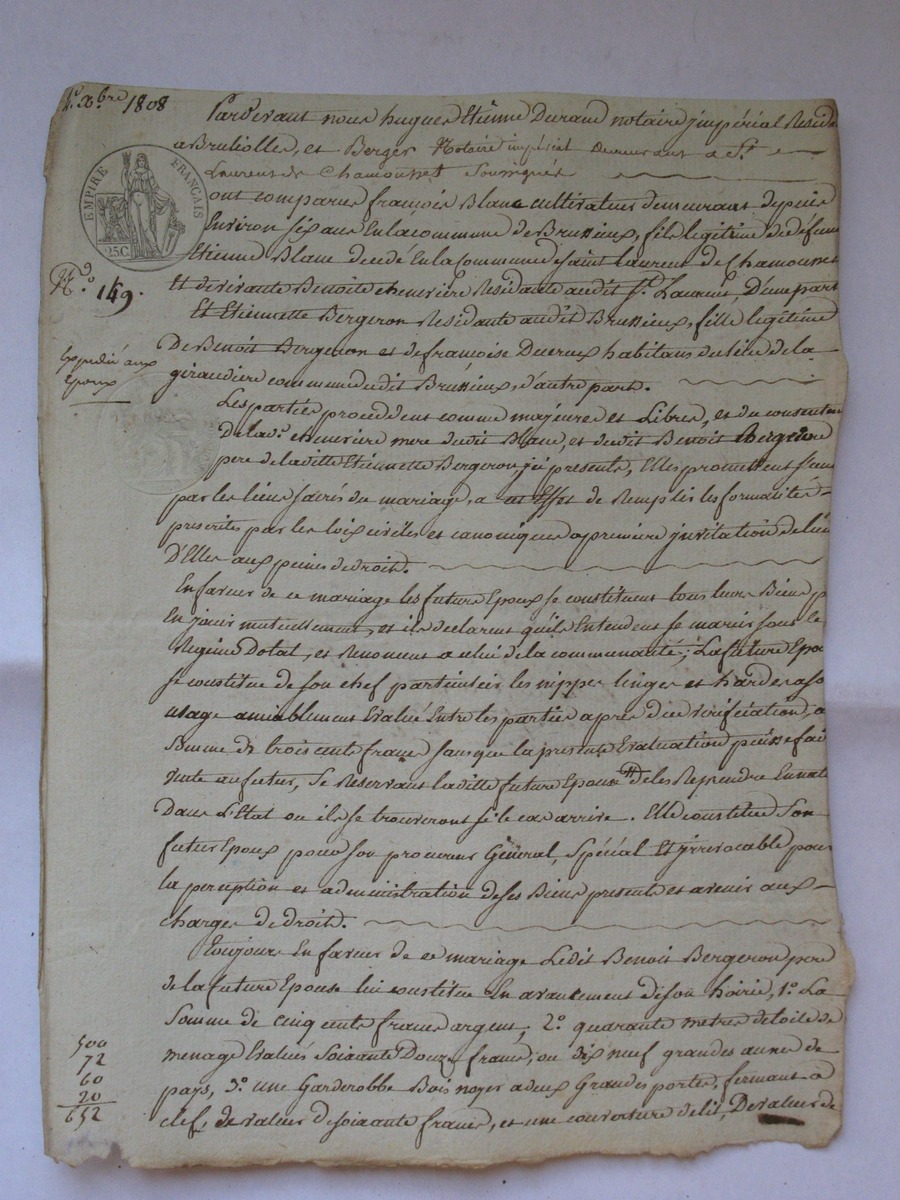 1808
Pardevant nous hugues Etienne Durand notaire jmpérial Reside
a Brullolles, et Berger Notaire impérial demeurant a St
Laurent de Chamousset Soussignés
EMPIRE FRANÇAIS
25C.
ont comparus françois Blanc cultivateur demeurant depuis
Environ six ans En la commune de Brussieux, fils legitime de défunt
Etienne Blanc decedé En la Commune de saint Laurent de Chamousset
N.° 149.
Et de vivante Benoite chenvrière Residante audit St. Laurent, D'une part
Et Etiennette Bergeron Residante audit Brussieux, fille legitime
De Benoit Bergeron et de françoise Ducreux habitans du lieu de la
Expedié aux
Epoux
giraudiere commune dudit Brussieux, d'autre part.
Les parties procedent comme majeures et Libres, et du consentem
De lad.e chenvrière mere dudit Blanc, et dudit Benoit Bergeron
pere de laditte Etiennette Bergeron jci presents, Elles promettent s'unir
par les liens sacrés du mariage, a cet Effet de Remplir les formalités
prescrites par les lois civiles et canoniques a premiere jnvitation de l'un
D'Elles aux peines de droit.
En faveur de ce mariage les futurs Epoux se constituent tous leurs Biens p
En jouir mutuellement, et ils declarent qu'ils Entendent se marier sous le
Regime Dotal, et Renoncent a celui de la communauté; La future Epou
se constitue de son chef particulier les nippes linges et hardes a so
usage amiablement Evalué Entre les parties apres due vérification, a
Somme de trois cents francs sans que la presente Evaluation puisse fai
vente au futur, Se Reservant laditte future Epouse de les Reprendre En nat
Dans L'Etat ou ils se trouveront si le cas arrive. Elle constitue Son
futur Epoux pour son procureur Général, Spécial Et jrrevocable pour
la perception et administration de ses Biens presents et avenir aux
charges de droit.
Toujours En faveur de ce mariage Ledit Benoit Bergeron pere
de la future Epouse lui constitue En avancement de son hoirie, 1.° La
Somme de cinq cents francs argent, 2.° quarante metres de toile de
500
72
60
20
652
menage Evalués Soixante Douze francs, ou dix neuf grandes aunes de
pays, 3.° une Garderobbe Bois noyer a deux Grandes portes, fermant a
clef, de valeur de soixante francs, et une couverture de lit, De valeur de